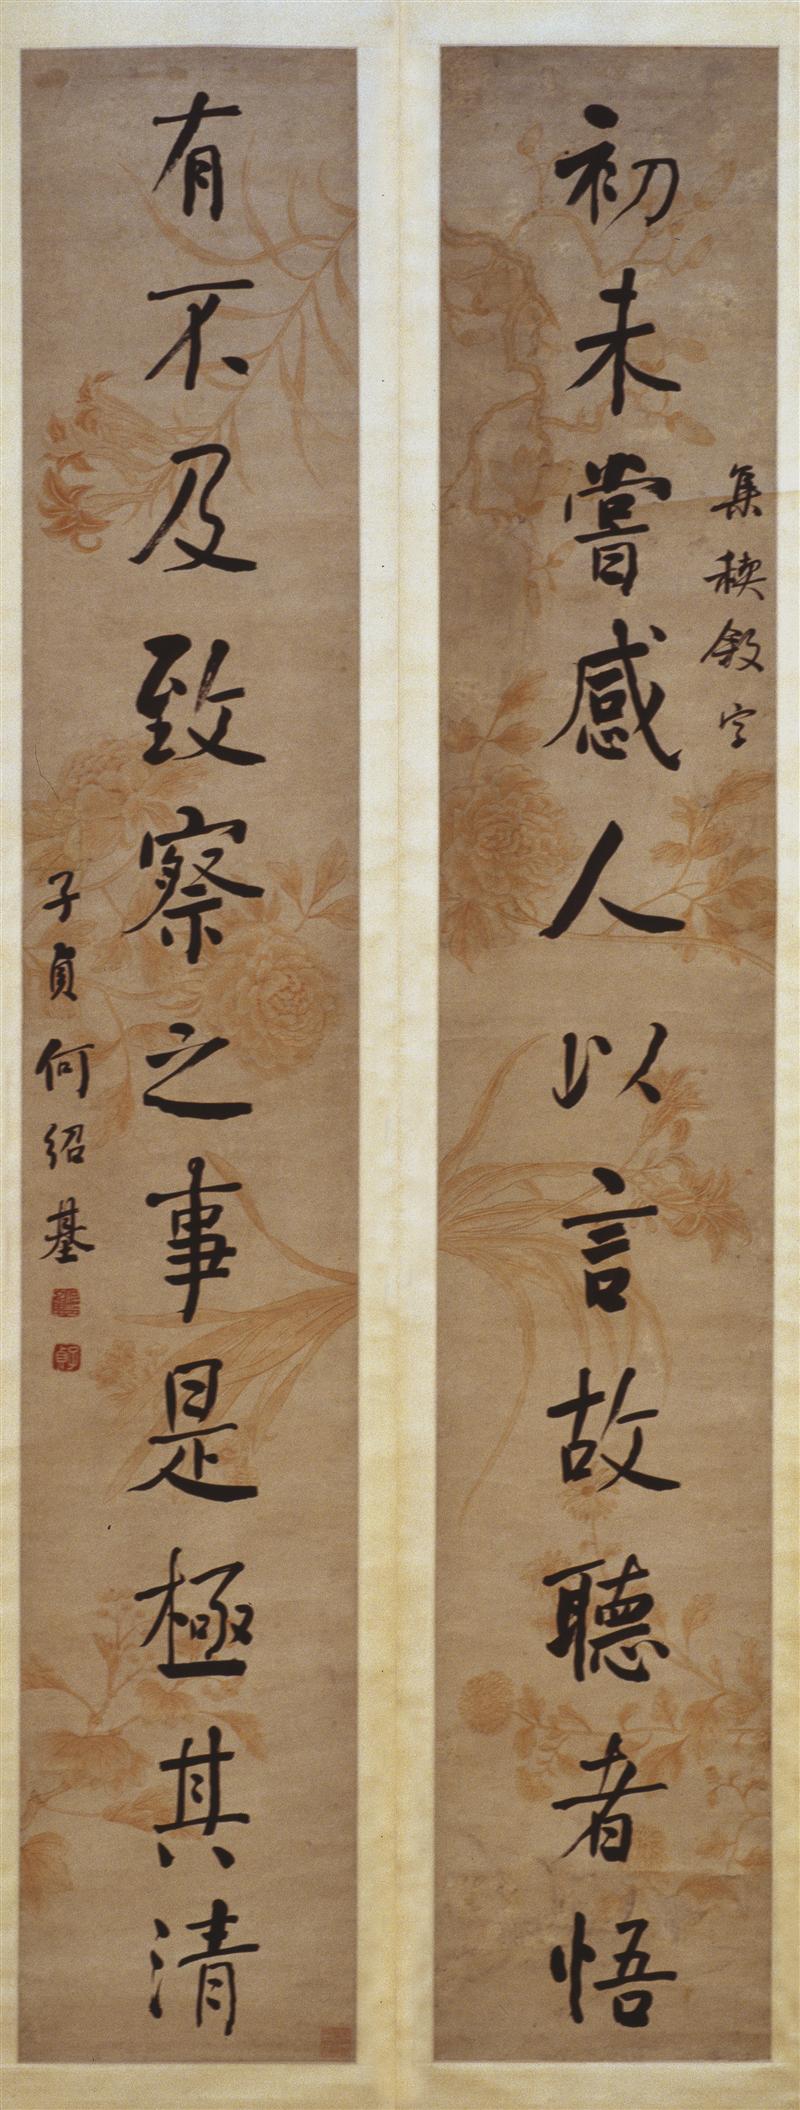 初未嘗感人以言故聽者悟
集禊敘字
有不及致察之事是極其清
子貞何紹基